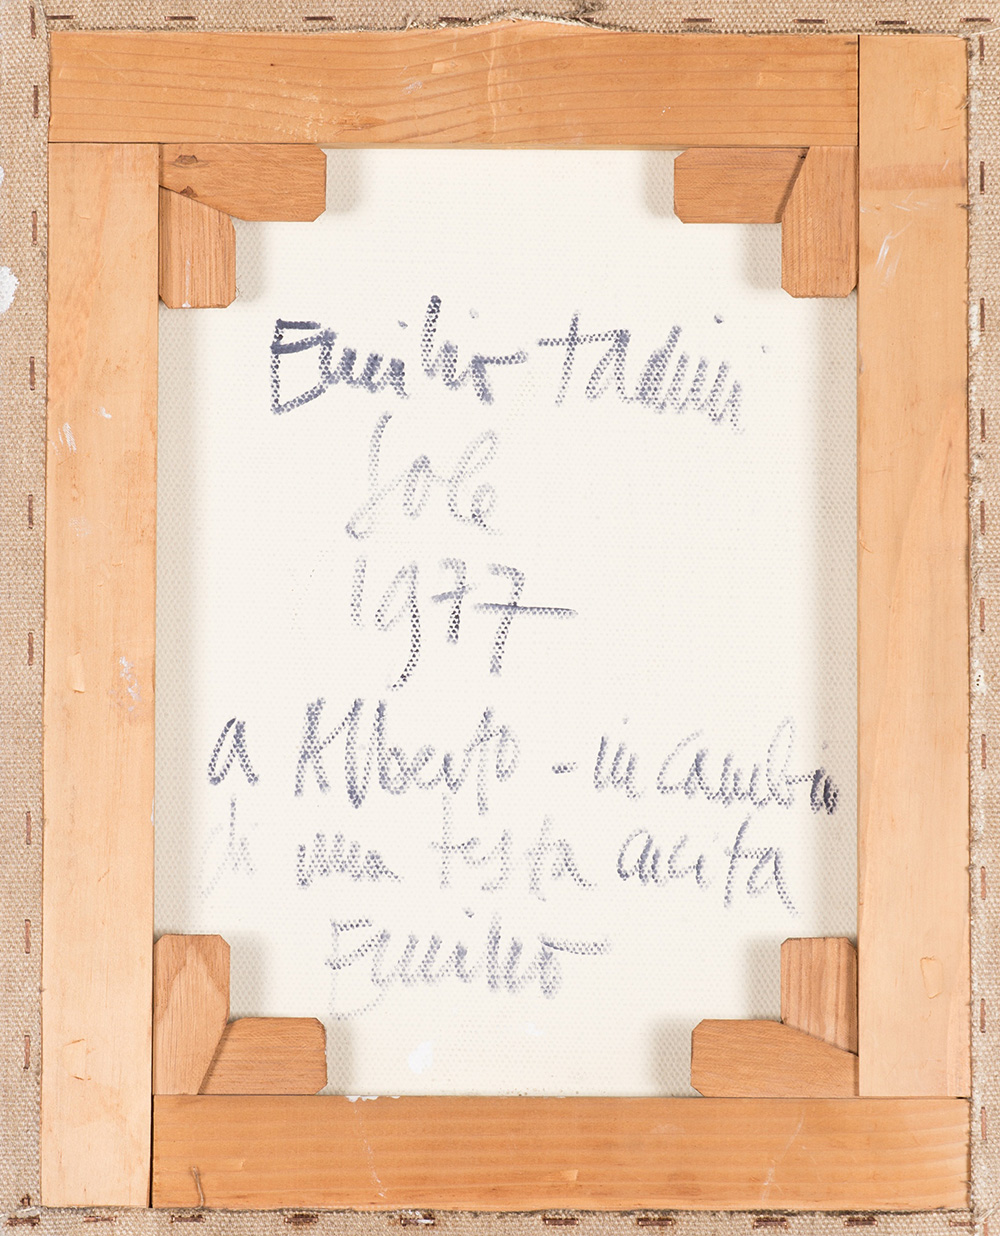 Emilio Tadini
Sole
1977
a Alberto - in cambio
di una testa
Emilio